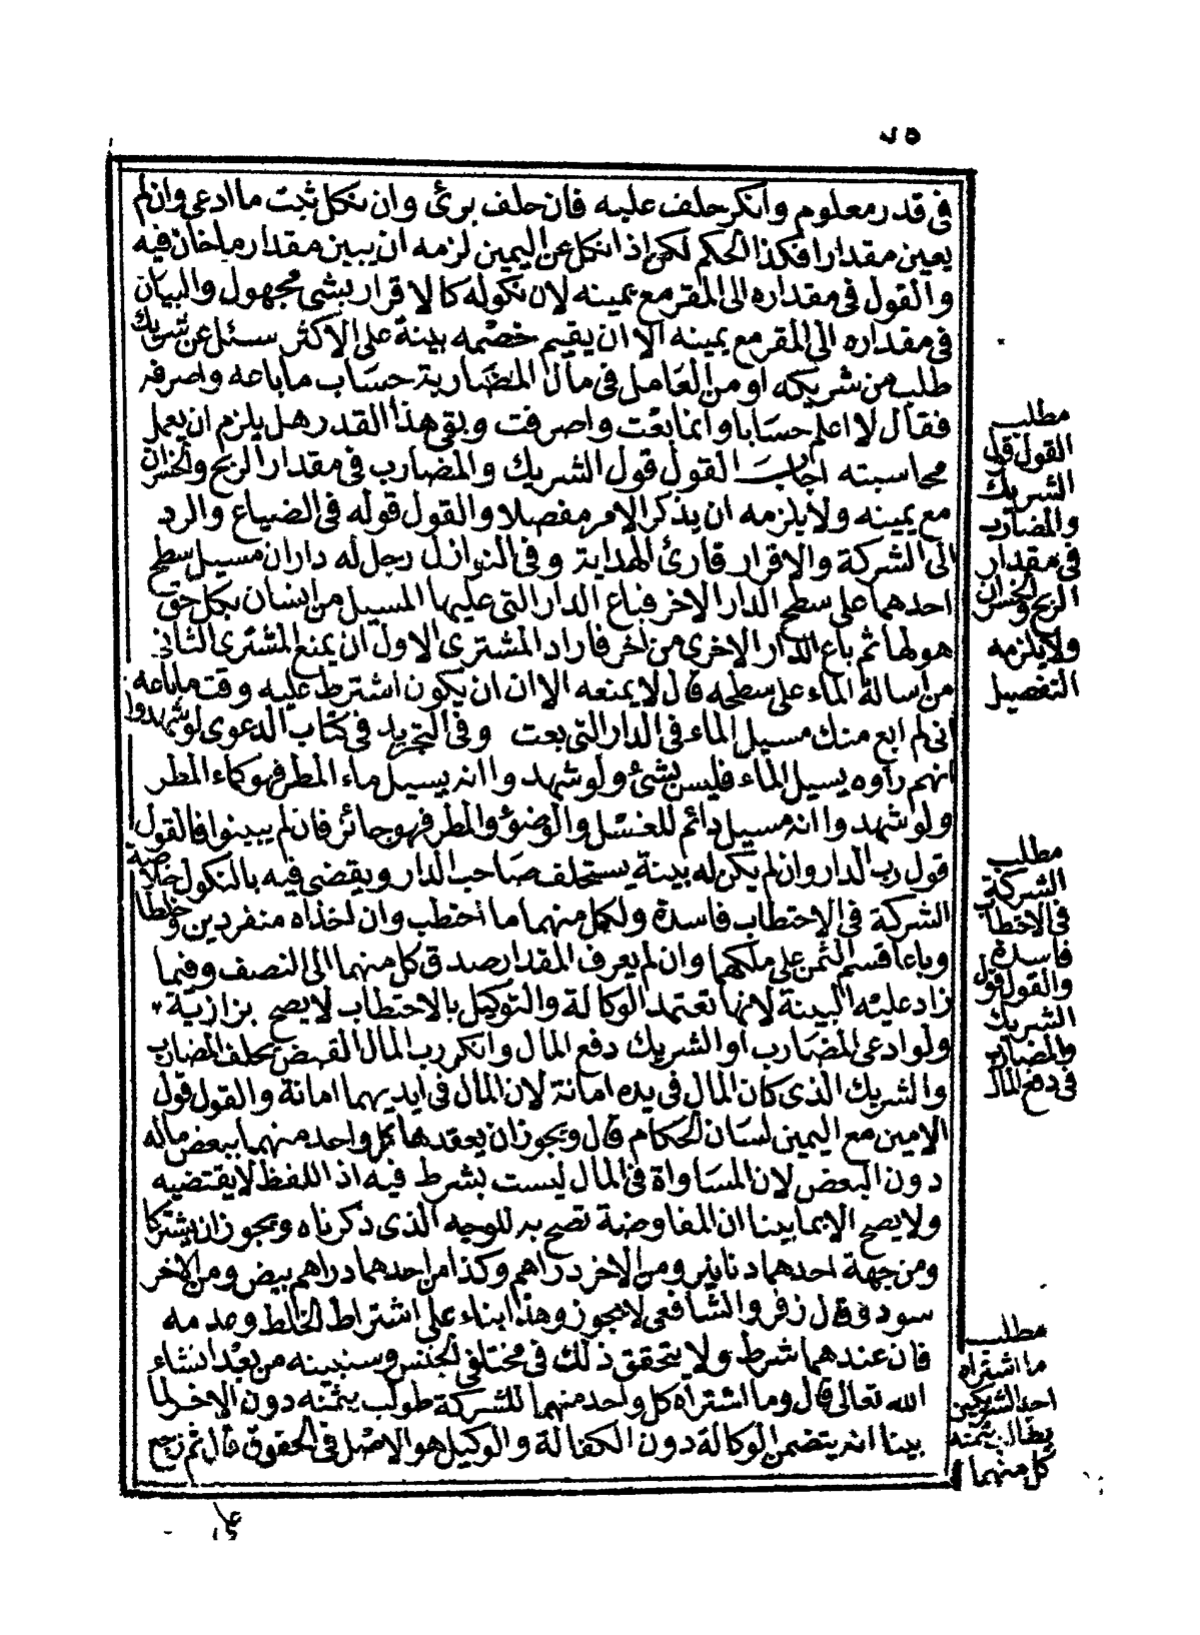 ٧٥
فى قدر معلوم وانكر حلف عليه فان حلف برئ وان نكل ثبت ما ادعى وان لم
يعين مقدارا فكذا الحكم لكن اذا نكل عن اليمين لزمه ان يبين مقدار ما خان فيه
والقول فى مقداره الى المقر مع يمينه لان نكوله كالاقرار بشئ مجهول والبيان
فى مقداره الى المقر مع يمينه الا ان يقيم خصمه بينة على الاكثر سئل عن شريك
طلب من شريكه او من العامل فى مال المضاربة حساب ما باعه واصرفه
فقال لا اعلم حسابا وانما بعت واصرفت وبقى هذا القدر هل يلزم ان يعمل
محاسبته اجاب القول قول الشريك والمضارب فى مقدار الربح والخسران
مع يمينه ولا يلزمه ان يذكر الامر مفصلا والقول قوله فى الضياع والرد
الى الشركة والاقرار قارئ الهداية وفى النوازل رجل له داران مسيل سطح
احدهما على سطح الدار الاخر فباع الدار التى عليها المسيل من انسان بكل حق
هو لها ثم باع الدار الاخرى من اخر فاراد المشترى الاول ان يمنع المشترى الثانى
من اسالة الماء على سطحه قال لا يمنعه الا ان ان يكون اشترط عليه وقت ما باعه
انى لم ابع منك مسيل الماء فى الدار التى بعت وفى التجريد فى كتاب الدعوى لو شهدوا
انهم راوه يسيل الماء فليس بشئ ولو شهدوا انه يسيل ماء المطر فهو كماء المطر
ولو شهدوا انه مسيل دائم للغسل والوضوء والمطر فهو جائز فان لم يبينوا فالقول
قول رب الدار وان لم يكن له بينة يستحلف صاحب الدار ويقضى فيه بالنكول خلاصة
الشركة فى الاحتطاب فاسدة ولكل منهما ما احتطب وان اخذاه منفردين وخلطا
وباعا قسم الثمن على ملكهما وان لم يعرف المقدار صدق كل منهما الى النصف وفيما
زاد عليه البينة لانها تعتمد الوكالة والتوكيل بالاحتطاب لا يصح بزازية
ولو ادعى المضارب او الشريك دفع المال وانكر رب المال القبض يحلف المضارب
والشريك الذى كان المال فى يده امانة لان المال فى ايديهما امانة والقول قول
الامين مع اليمين لسان الحكام قال ويجوز ان يعقدها كل واحد منهما ببعض ماله
دون البعض لان المساواة فى المال ليست بشرط فيه اذ اللفظ لا يقتضيه
ولا يصح الا بما بينا ان المفاوضة تصح به للوجه الذى ذكرناه ويجوز ان يشتركا
ومن جهة احدهما دنانير ومن الاخر دراهم وكذا من احدهما دراهم بيض ومن الاخر
سود وقال زفر والشافعى لا يجوز وهذا بناء على اشتراط الخلط وعدمه
فان عندهما شرط ولا يتحقق ذلك فى مختلفى الجنس وسنبينه من بعد ان شاء
الله تعالى قال وما اشتراه كل واحد منهما للشركة طولب بثمنه دون الاخر لما
بينا انه يتضمن الوكالة دون الكفالة والوكيل هو الاصل فى الحقوق قال ثم يرجع
على
مطلب
القول قول
الشريك
والمضارب
فى مقدار
الربح والخسران
ولا يلزمه
التفصيل
مطلب
الشركة
فى الاحتطاب
فاسدة
والقول قول
الشريك
والمضارب
فى دفع المال
مطلب
ما اشتراه
احد الشريكين
يطالب بثمنه
كل منهما